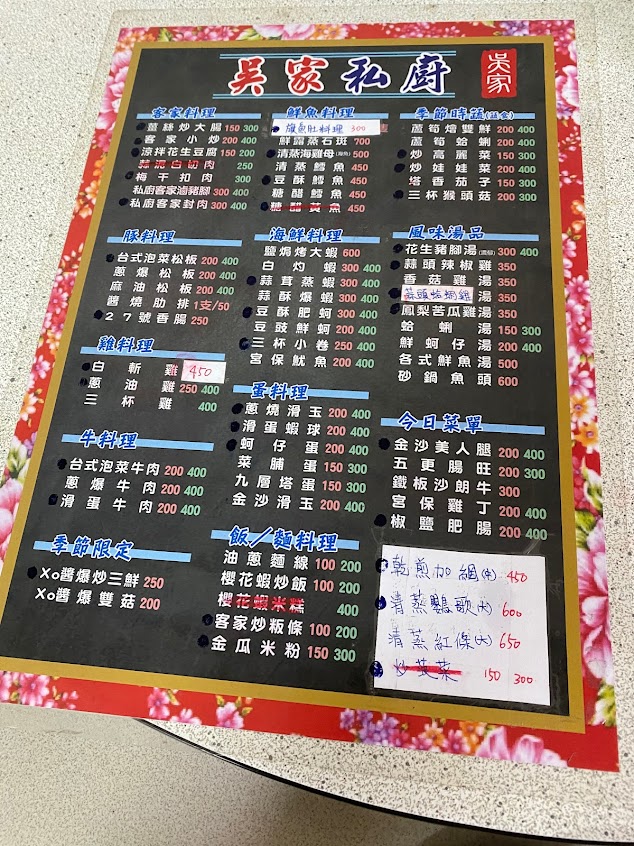 吳家私廚
吳家
客家料理
薑絲炒大腸 150 300
客家小炒 200 400
涼拌花生豆腐 150 200
蒜泥白切肉 250
梅干扣肉 300
私廚客家滷豬腳 300 400
私廚客家封肉 300 400
豚料理
台式泡菜松板 200 400
蔥爆松板 200 400
麻油松板 200 400
醬燒肋排 1支/50
27號香腸 250
雞料理
白斬雞 450
蔥油雞 250 400
三杯雞 400
牛料理
台式泡菜牛肉 200 400
蔥爆牛肉 200 400
滑蛋牛肉 200 400
季節限定
Xo醬爆炒三鮮 250
Xo醬爆雙菇 200
鮮魚料理
旗魚肚料理 300
鮮露蒸石斑 700
清蒸海雞母 500
清蒸鱈魚 450
豆酥鱈魚 450
糖醋鱈魚 450
糖醋黃魚 450
海鮮料理
鹽焗烤大蝦 600
白灼蝦 300 400
蒜茸蒸蝦 300 400
蒜酥爆蝦 300 400
豆酥肥蚵 300 400
豆豉鮮蚵 200 400
三杯小卷 250 400
宮保魷魚 200 400
蛋料理
蔥燒滑玉 200 400
滑蛋蝦球 200 400
蚵仔蛋 200 400
菜脯蛋 150 300
九層塔蛋 150 300
金沙滑玉 200 400
飯/麵料理
油蔥麵線 100 200
櫻花蝦炒飯 100 200
櫻花蝦米糕 400
客家炒粄條 100 200
金瓜米粉 150 300
季節時蔬
蘆筍燴雙鮮 200 400
蘆筍蛤蜊 200 400
炒高麗菜 150 300
炒娃娃菜 200 400
塔香茄子 150 300
三杯猴頭菇 200 300
風味湯品
花生豬腳湯 300 400
蒜頭辣椒雞 350
香菇雞湯 350
蒜頭蛤蜊雞湯 350
鳳梨苦瓜雞湯 350
蛤蜊湯 150 300
鮮蚵仔湯 200 400
各式鮮魚湯 500
砂鍋魚頭 600
今日菜單
金沙美人腿 200 400
五更腸旺 200 300
鐵板沙朗牛 300
宮保雞丁 200 400
椒鹽肥腸 200 400
乾煎加網(中) 450
清蒸鸚歌(大) 600
清蒸紅條(大) 650
炒莧菜 150 300